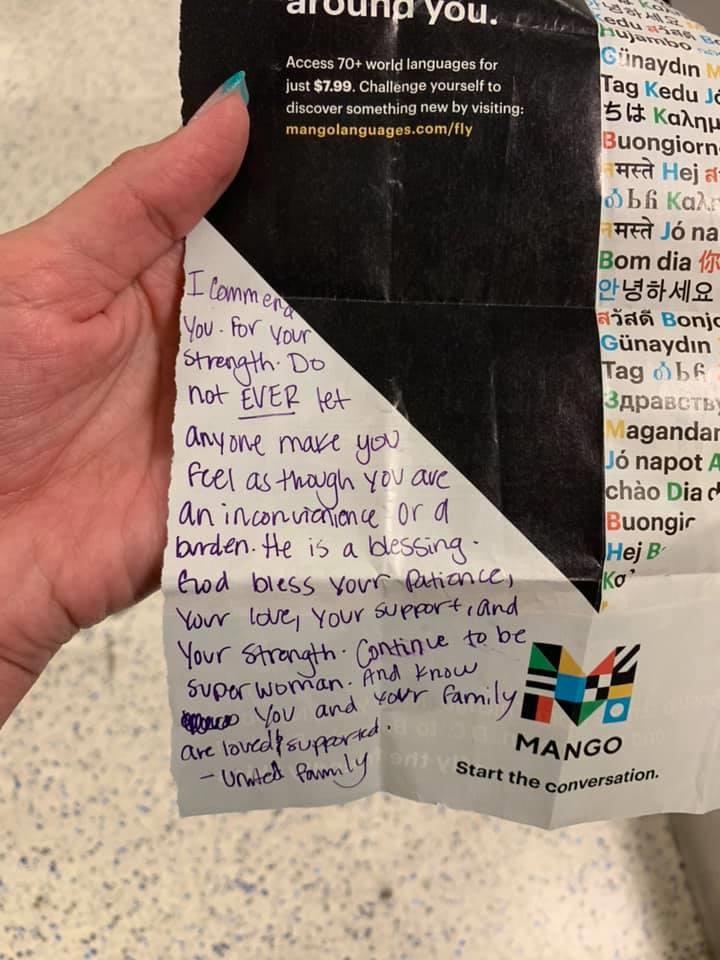 around you.
Access 70+ world languages for
just $7.99. Challenge yourself to
discover something new by visiting:
mangolanguages.com/fly
I commend
You. For Your
Strength. Do
not EVER let
anyone make you
feel as though you are
an inconvienience or a
burden. He is a blessing.
God bless your patience,
Your love, Your support, and
Your strength. Continue to be
superwoman. And know
You and your family
are loved & supported.
- United Family
안녕하세요
edu สวัสดี
Hujambo
Günaydın
Tag Kedu Jó
ちは Καλημ
Buongiorn
नमस्ते Hej
Καλη
नमस्ते Jó na
Bom dia 你
안녕하세요
สวัสดี Bonjo
Günaydın
Tag
Здравств
Magandan
Jó napot
chào Dia
Buongio
Hej B
MANGO
Start the conversation.